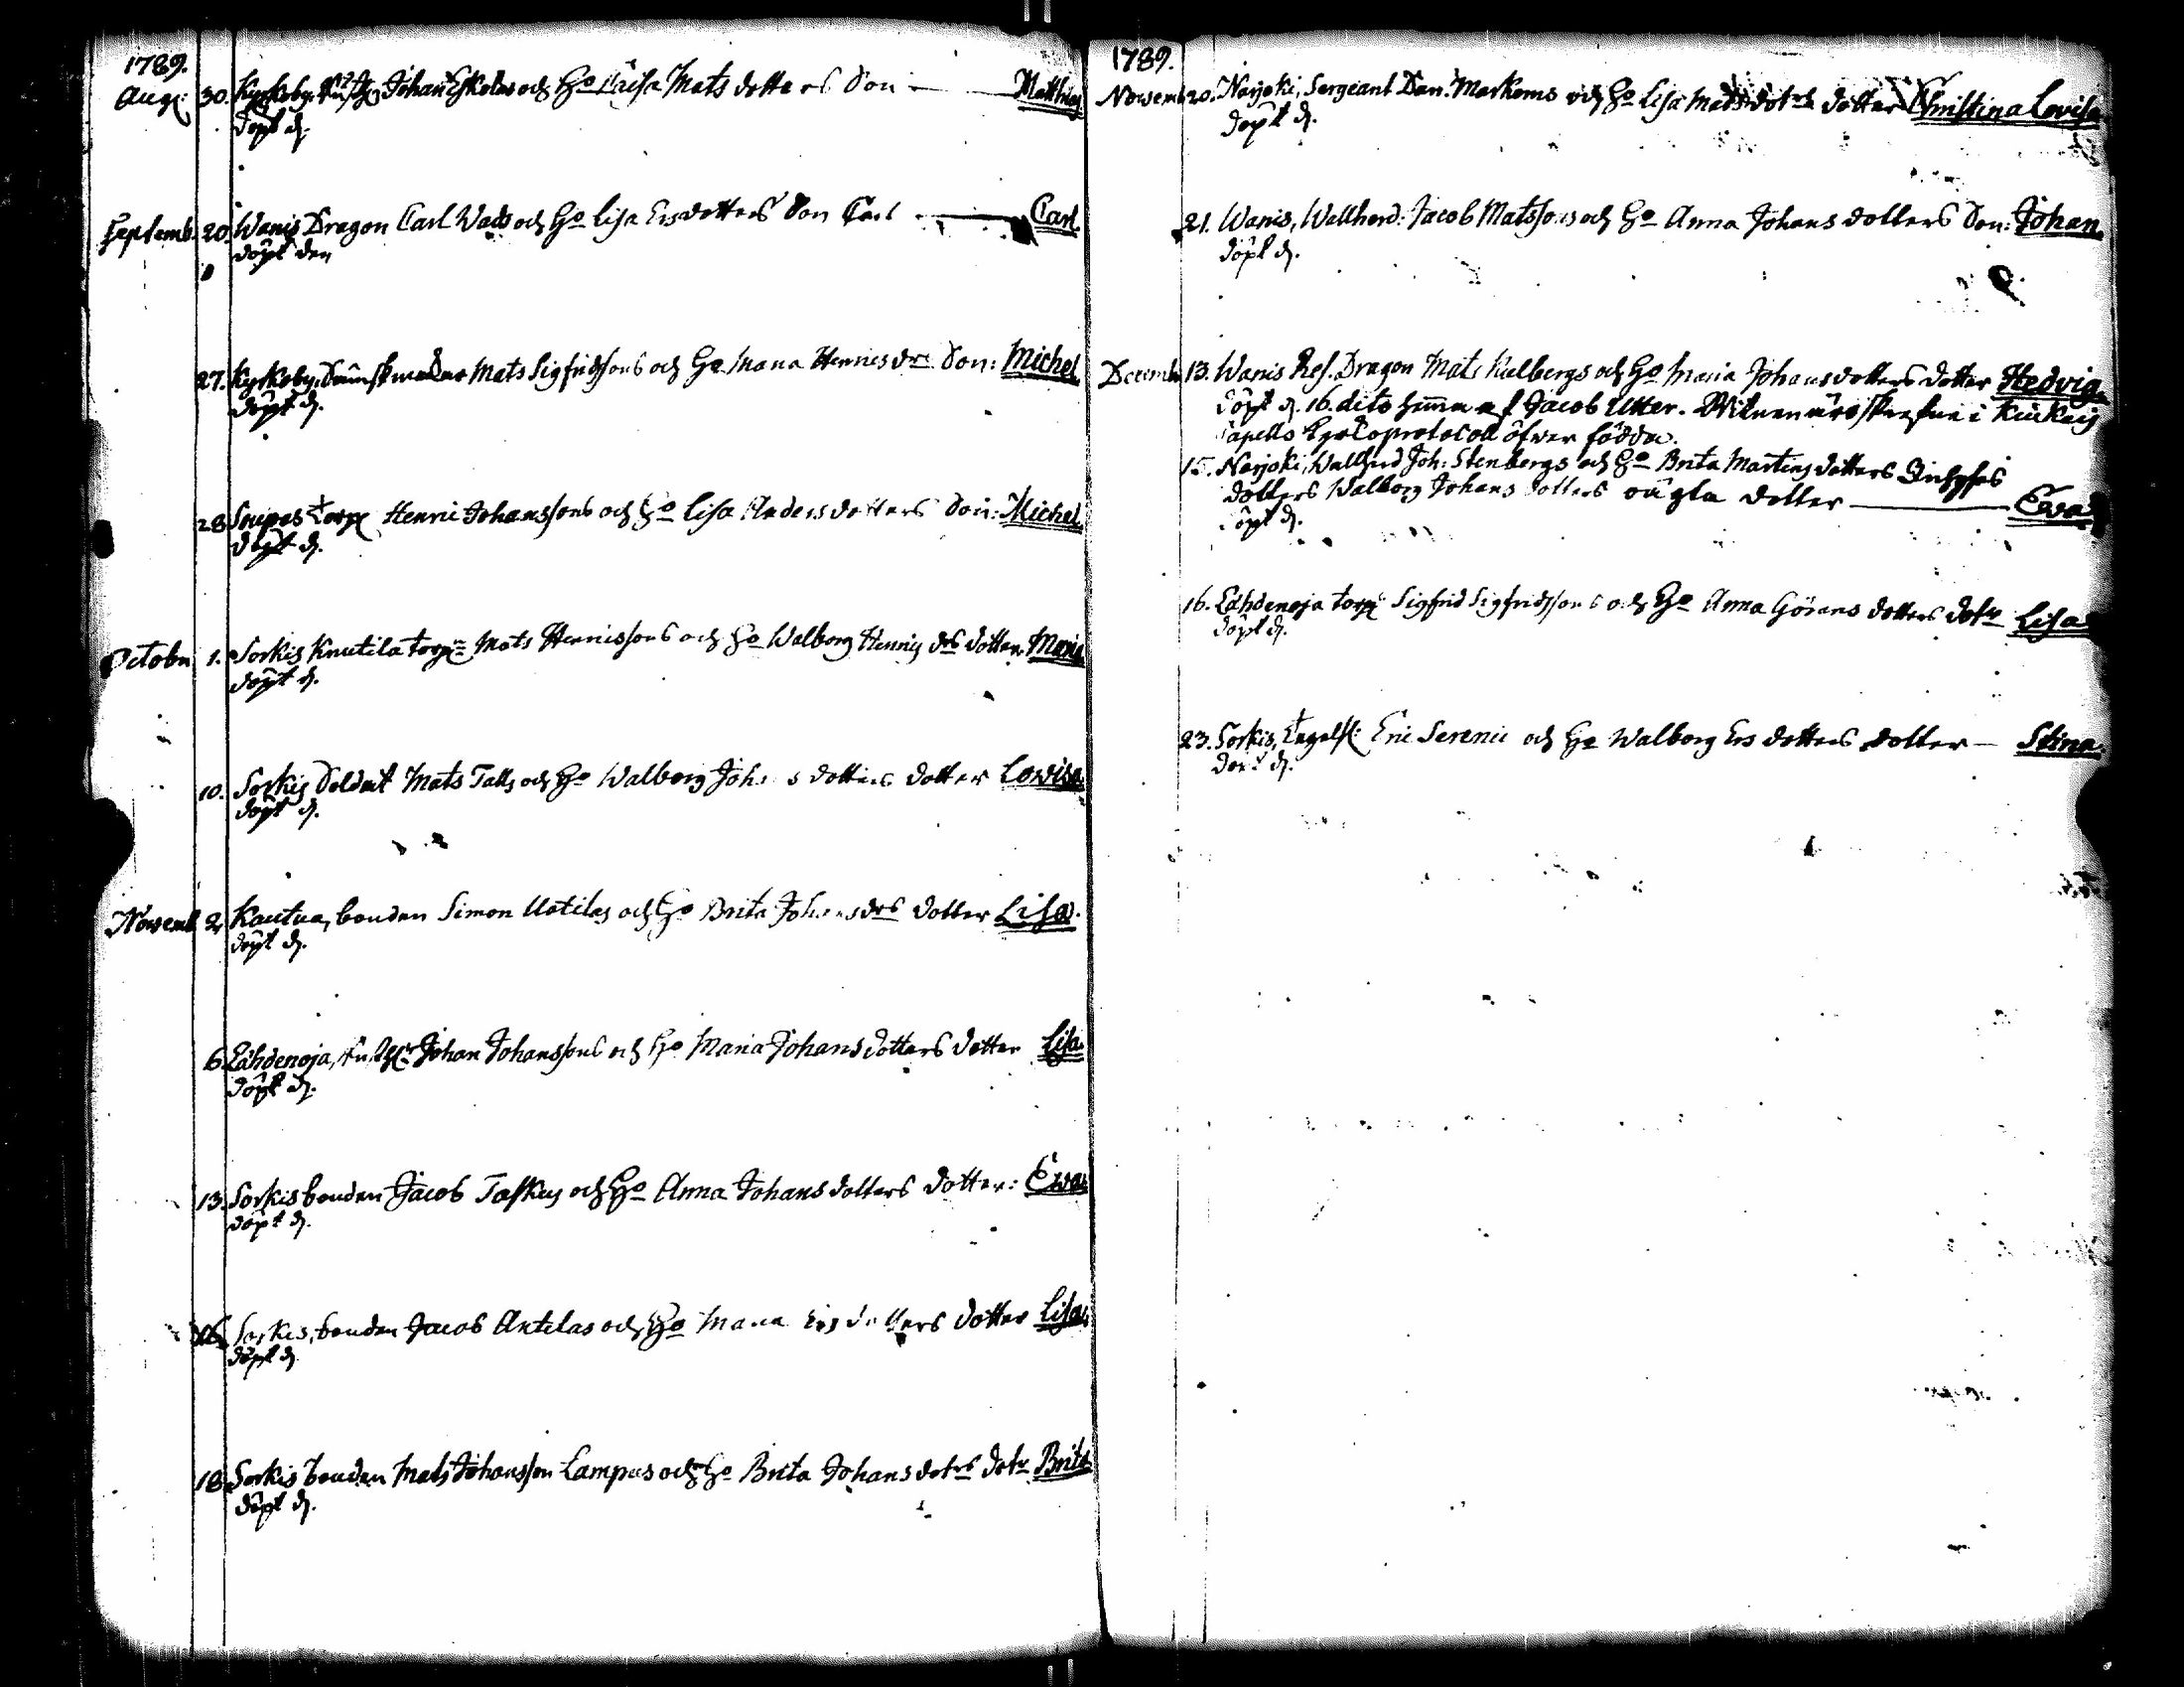 1789.
Aug: 30. Kyrkoby, Johan Eskolas och Ho Caisa Mats dotters Son — Matthias
döpt d.
Septemb. 20. Wanis Dragon Carl Wads och Ho Lisa Ersdotters Son Carl — Carl.
döpt den
27. Kyrkoby, Mats Sigfridssons och Ho Maria Henricsdrs Son: Michel.
döpt d.
28. torp Henric Johanssons och Ho Lisa Andersdotters Son: Michel.
döpt d.
Octobr. 1. Sorkis Knutila torp: Mats Henrissons och Ho Walborg Henricsdrs dotter Maria
döpt d.
10. Sorkis Soldat Mats Tatts och Ho Walborg Johansdotters dotter Lovisa
döpt d.
Novemb. 2. Kautua, bonden Simon Uotilas och Ho Brita Johansdrs dotter Lisa.
döpt d.
6. Lähdenoja, Johan Johanssons och Ho Maria Johansdotters dotter Lisa
döpt d.
13. Sorkis bonden Jacob Taskus och Ho Anna Johansdotters dotter: Ewa
döpt d.
16. Sorkis, bonden Jacob Antilas och Ho Maria Ersdotters dotter Lisa.
döpt d.
18. Sorkis bonden Mats Johansson Lampus och Ho Brita Johansdotrs dotr Brita
döpt d.
1789.
Novemb. 20. Narjoki, Sergeant Dan. Markems och Ho Lisa Matsdotrs dotter Christina Lovisa
döpt d.
21. Wanis, Wallherd: Jacob Matssons och Ho Anna Johansdotters Son: Johan.
döpt d.
Decemb. 13. Wanis Res. Dragon Mats Kulbergs och Ho Maria Johansdotters dotter Hedvig
döpt d. 16. dito hemma af Jacob Utter. Witnen äro skrefne i Kiukais
Capells Kyrkoprotocoll öfwer födda.
15. Narjoki, Wallherd Joh: Stenbergs och Ho Brita Martins dotters
dotters Walborg Johans dotters oägta dotter — Ewa
döpt d.
16. Lähdenoja torp: Sigfrid Sigfridssons och Ho Anna Görans dotters dotr Lisa
döpt d.
23. Sorkis, Eric Serenii och Ho Walborg Ersdotters dotter — Stina.
döpt d.